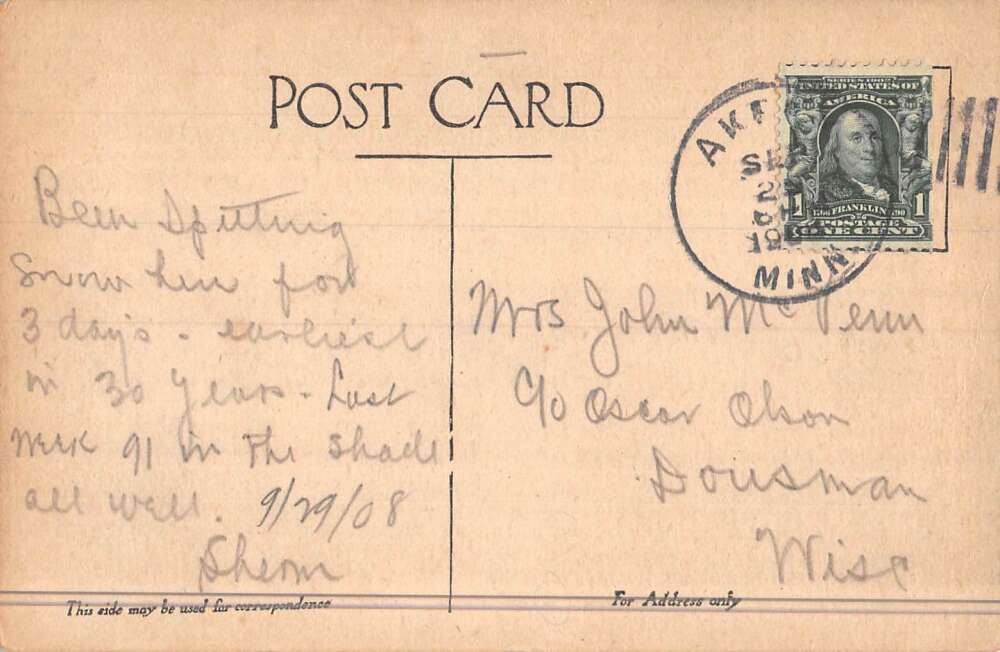 POST CARD
AKE
SE
2
190
MINN.
SERIES 1902
UNITED STATES OF
AMERICA
1 FRANKLIN 1
POSTAGE
ONE CENT
Been Spitting
Snow here for
3 day's - earliest
in 30 years - Last
week 91 in The shade
all well. 9/29/08
Sherm
Mrs John Mc
c/o Oscar Olson
Dousman
Wisc
This side may be used for correspondence
For Address only